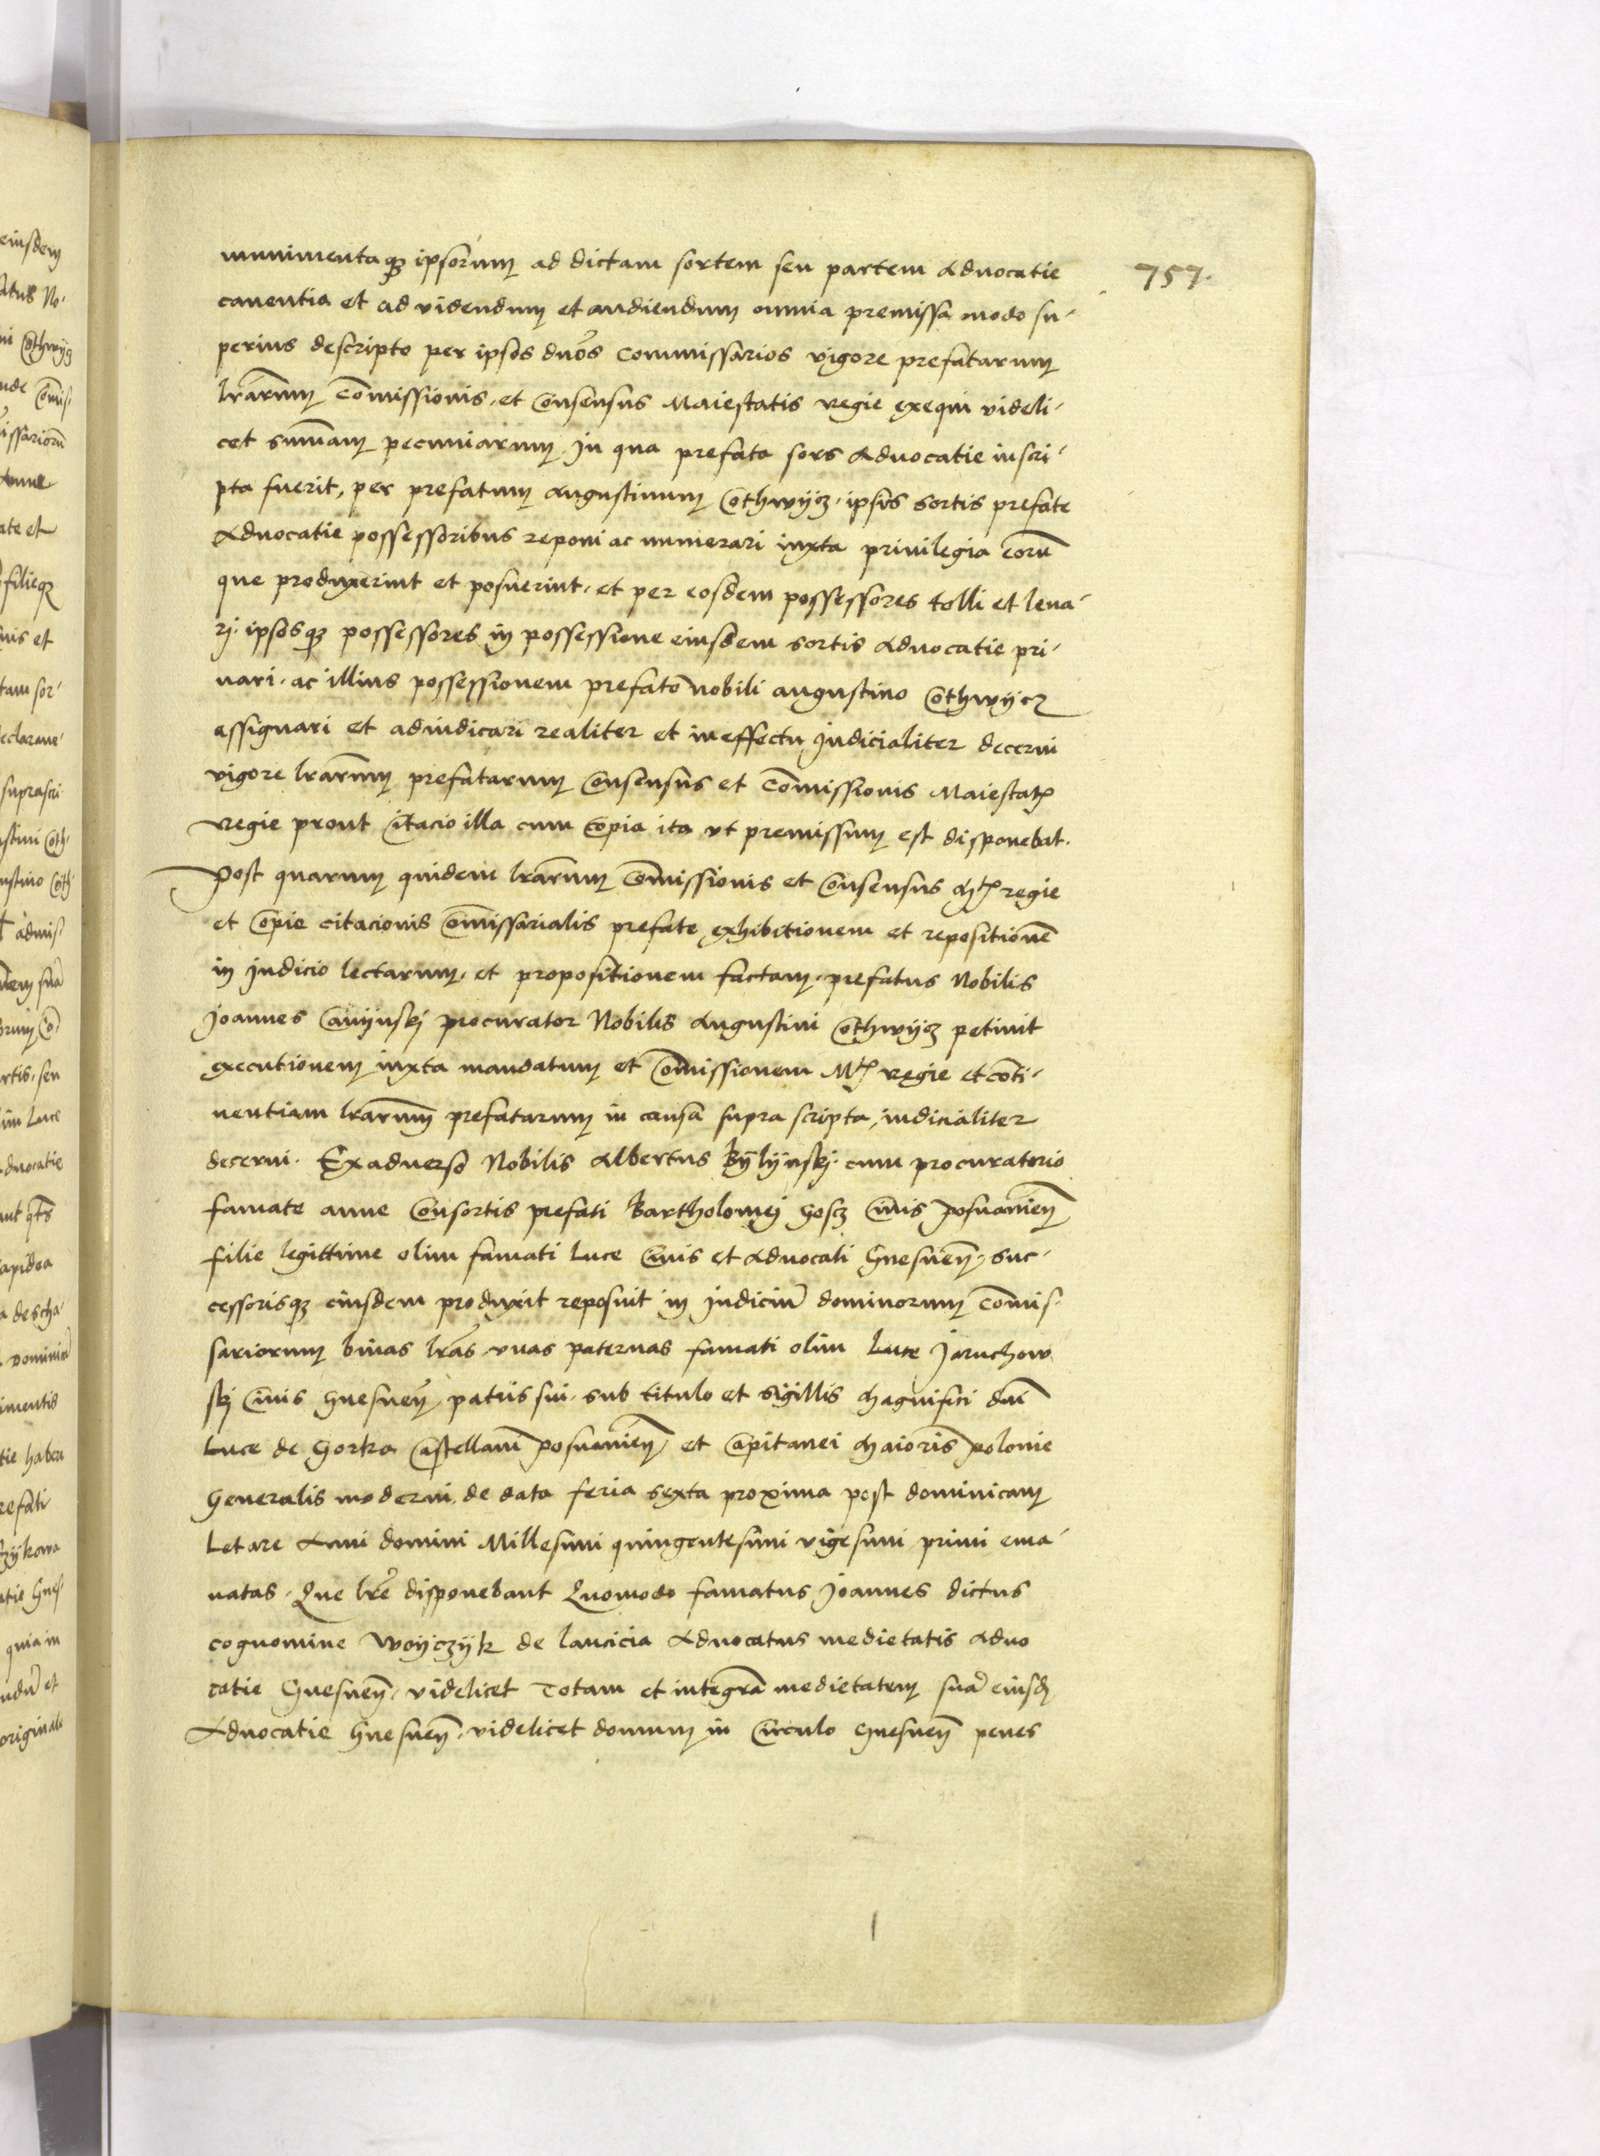 757.
munimentaq₃ ipsorum ad dictam sortem seu partem Aduocatie
cauentia et ad videndum et audiendum omnia premissa modo su-
perius descripto per ipsos dnos Commissarios vigore prefatarum
lrarum Comissionis et Consensus Maiestatis regie exequi videli-
cet sumam pecuniarum in qua prefata sors Aduocatie inscri-
pta fuerit, per prefatum Augustinum Cothwycz ipsis sortis prefate
Aduocatie possessoribus reponi ac numerari iuxta priuilegia eorum
que produxerint et posuerint et per eosdem possessores tolli et leua-
ri ipsosq₃ possessores in possessione eiusdem sortis Aduocatie pri-
uari ac illius possessionem prefato nobili Augustino Cothwycz
assignari et adiudicari realiter et in effectu Judicialiter decerni
vigore lrarum prefatarum Consensus et Comissionis Maiestatis
regie prout Citacio illa cum Copia ita vt premissum est disponebat.
Post quarum quidem lrarum Comissionis et Consensus Mtis regie
et Copie citacionis Comissarialis prefate exhibitionem et repositionem
in Judicio lectarum et propositionem factam prefatus Nobilis
Joannes procurator Nobilis Augustini Cothwycz petiuit
executionem iuxta mandatum et Comissionem Mtis regie et conti-
nentiam lrarum prefatarum in causa supra scripta, iudicialiter
decerni. Ex aduerso Nobilis Albertus Bylynskj cum procuratorio
famate anne Consortis prefati Bartholomej Gosz Ciuis Posnanien
filie legittime olim famati Luce Ciuis et Aduocati Gnesnen suc-
cessorisq₃ eiusdem produxit reposuit in Judicium dominorum Comis-
sariorum binas lras vnas paternas famati olim Luce Jaruchow
skj Ciuis Gnesnen patris sui sub titulo et sigillis Magnifici dni
Luce de Gorka Castellani Posnanien et Capitanei Maioris Polonie
Generalis moderni de data feria sexta proxima post dominicam
Letare Anni domini Millesimi quingentesimi vigesimi primi ema-
natas. Que lre disponebant Quomodo famatus Joannes dictus
cognomine Woyczyk de Lancicia Aduocatus medietatis aduo
catie Gnesnen videlicet Totam et integram medietatem suam eiusdem
Aduocatie Gnesnen videlicet domum in Circulo Gnesnen penes